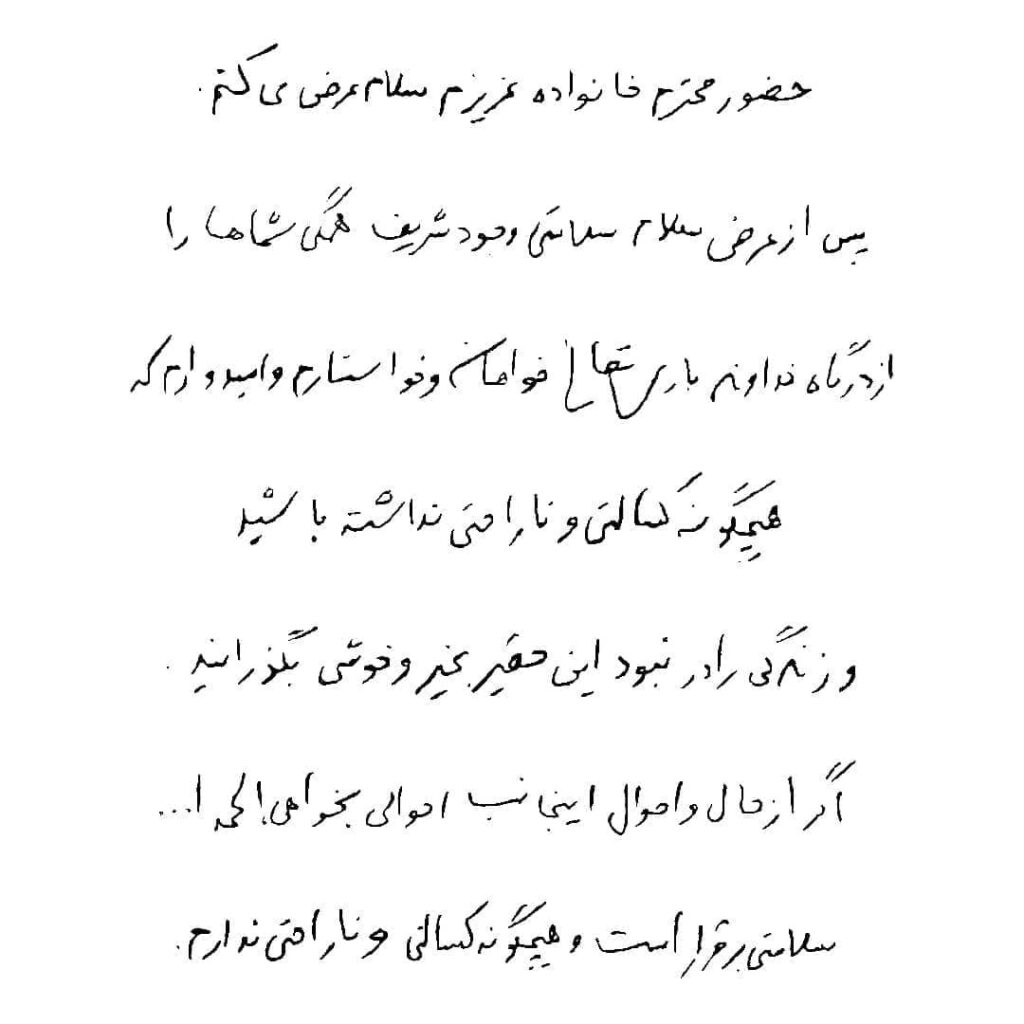 حضور محترم خانواده عزیزم سلام عرض می کنم.
پس از عرض سلام سلامتی وجود شریف همگی شماها را
از درگاه خداوند باری تعالی خواهان و خواستارم و امیدوارم که
هیچگونه کسالتی و ناراحتی نداشته باشید
و زندگی را در نبود این حقیر بخیر و خوشی بگذرانید.
اگر از حال و احوال اینجانب احوالی بخواهی الحمد ا...
سلامتی برقرار است و هیچگونه کسالتی و ناراحتی ندارم.